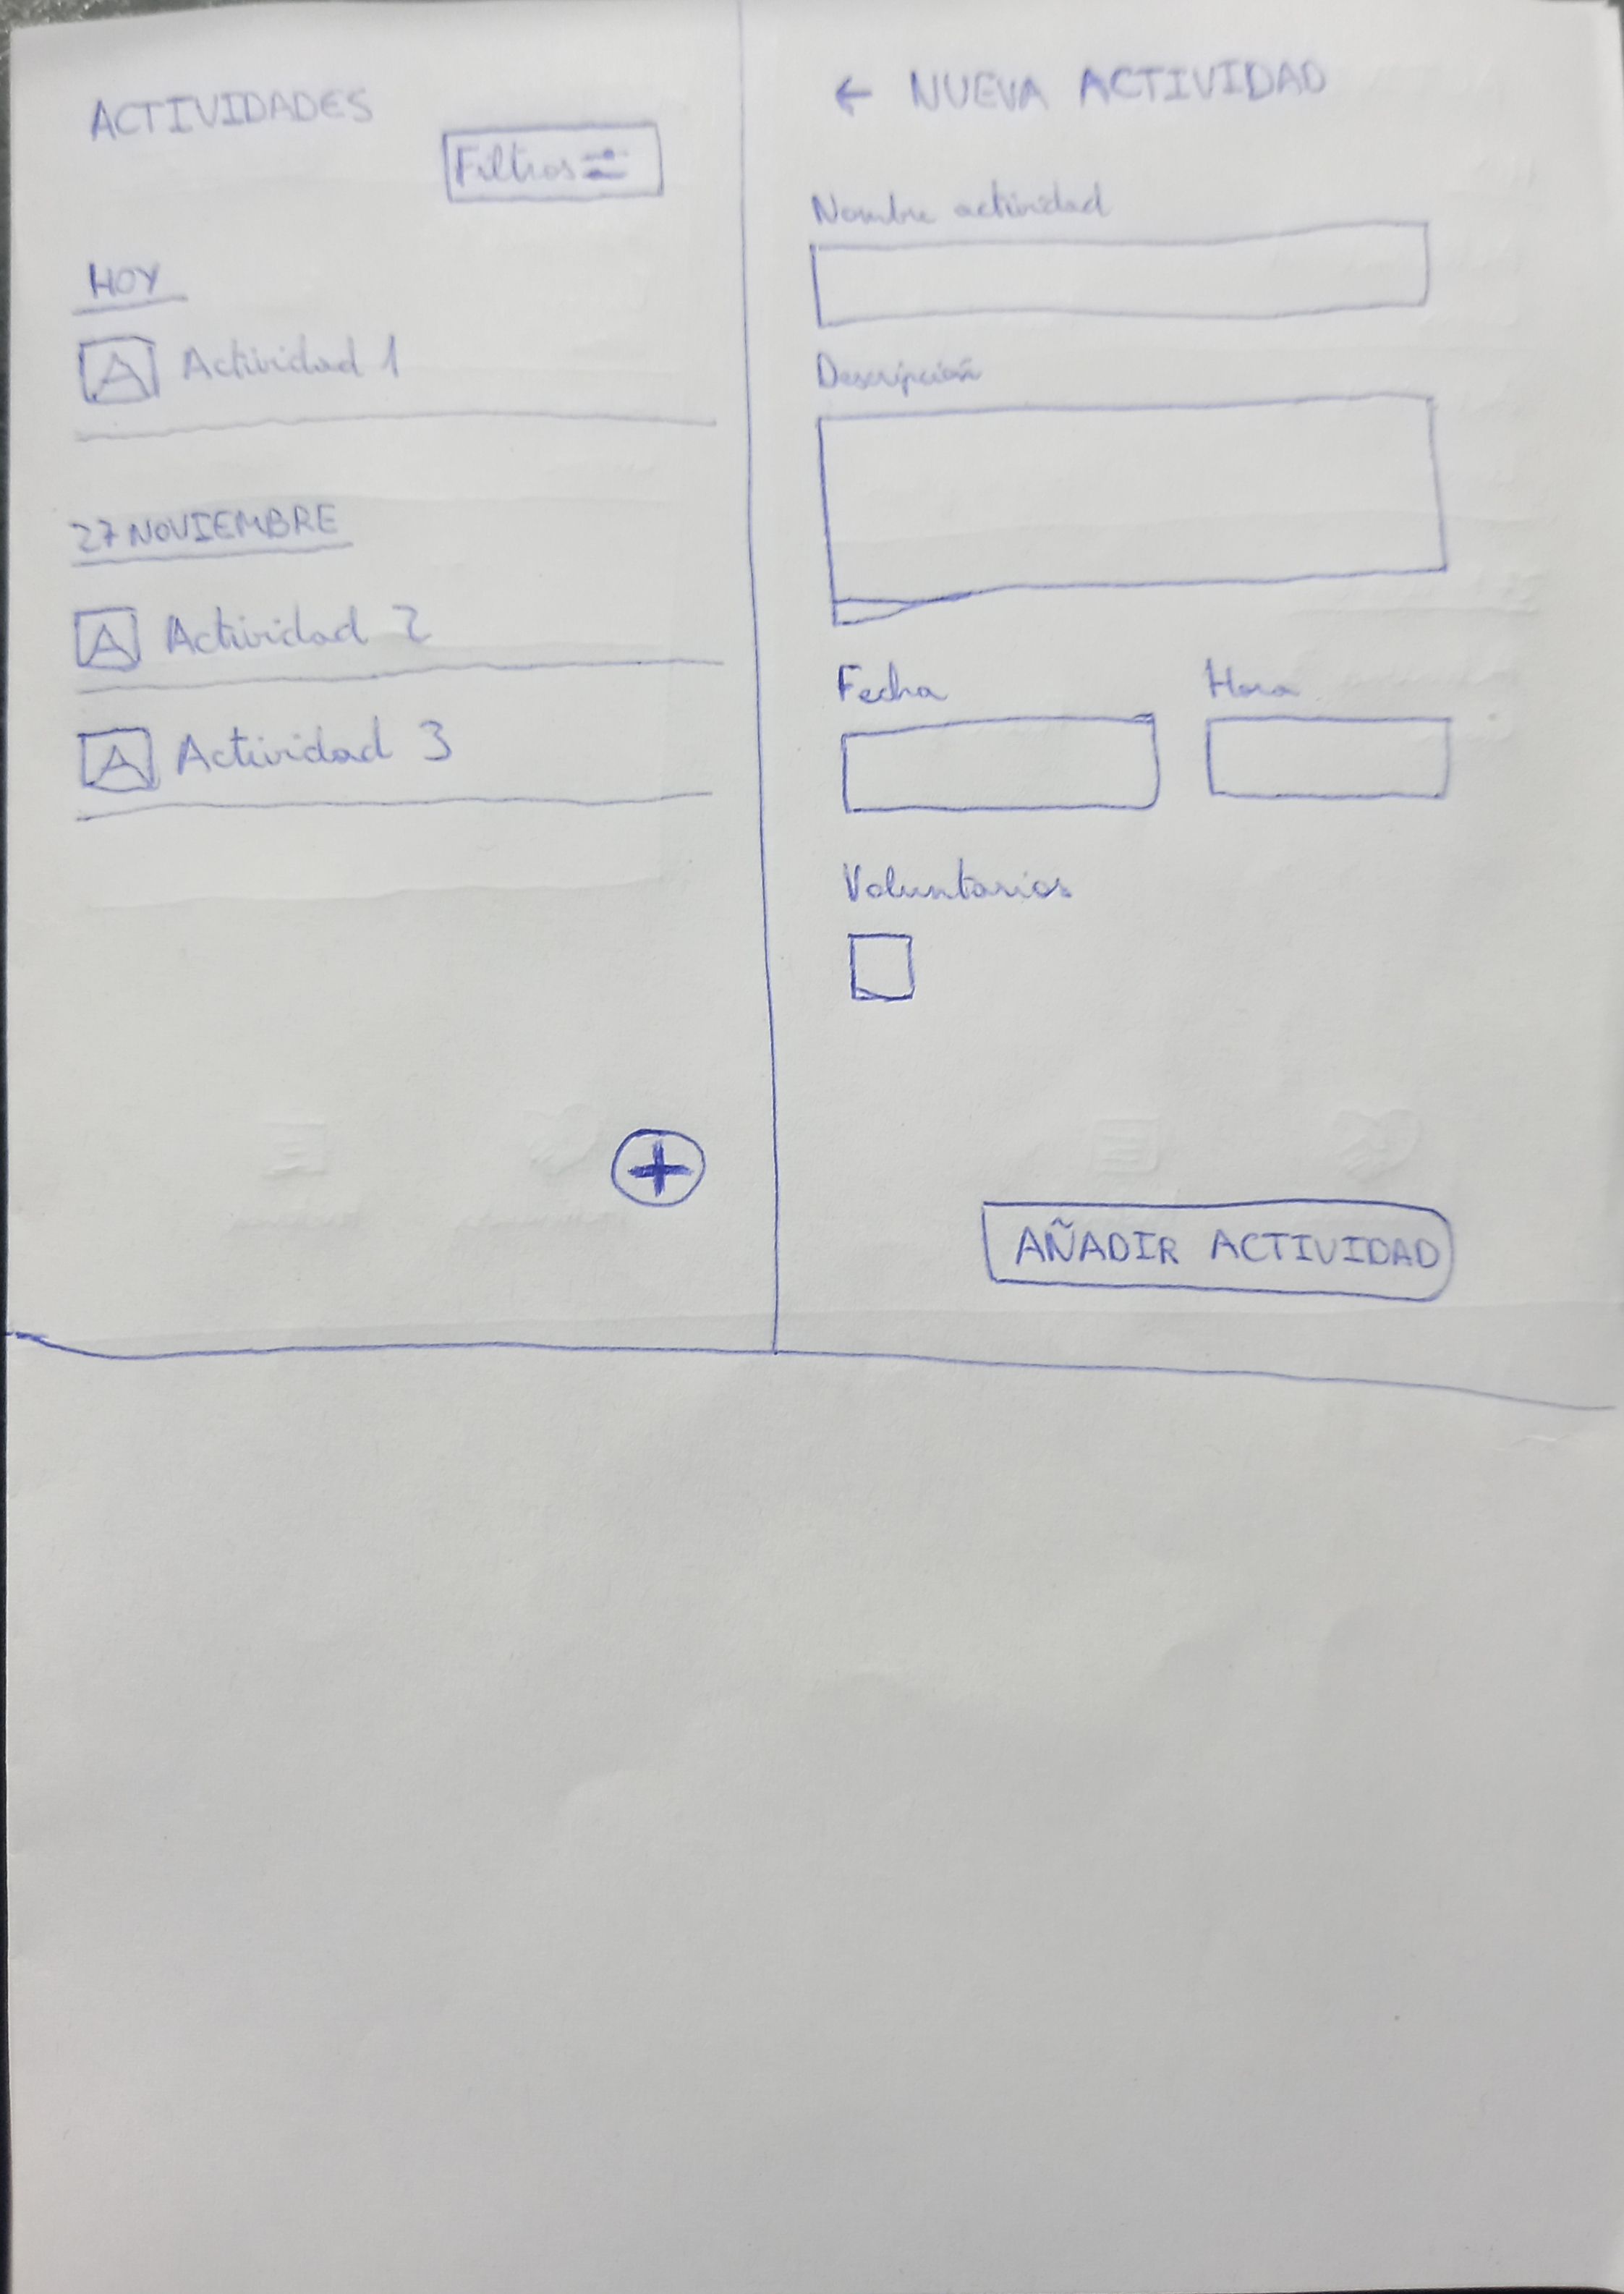 ACTIVIDADES
Filtros
HOY
A Actividad 1
27 NOVIEMBRE
A Actividad 2
A Actividad 3
+
← NUEVA ACTIVIDAD
Nombre actividad
Descripción
Fecha Hora
Voluntarios
AÑADIR ACTIVIDAD